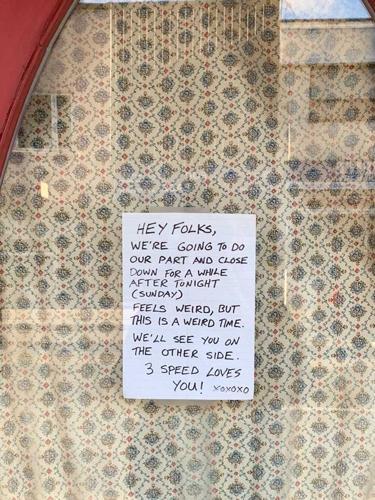 HEY FOLKS,
WE'RE GOING TO DO
OUR PART AND CLOSE
DOWN FOR A WHILE
AFTER TONIGHT
(SUNDAY)
FEELS WEIRD, BUT
THIS IS A WEIRD TIME.
WE'LL SEE YOU ON
THE OTHER SIDE.
3 SPEED LOVES
YOU! XOXOXO